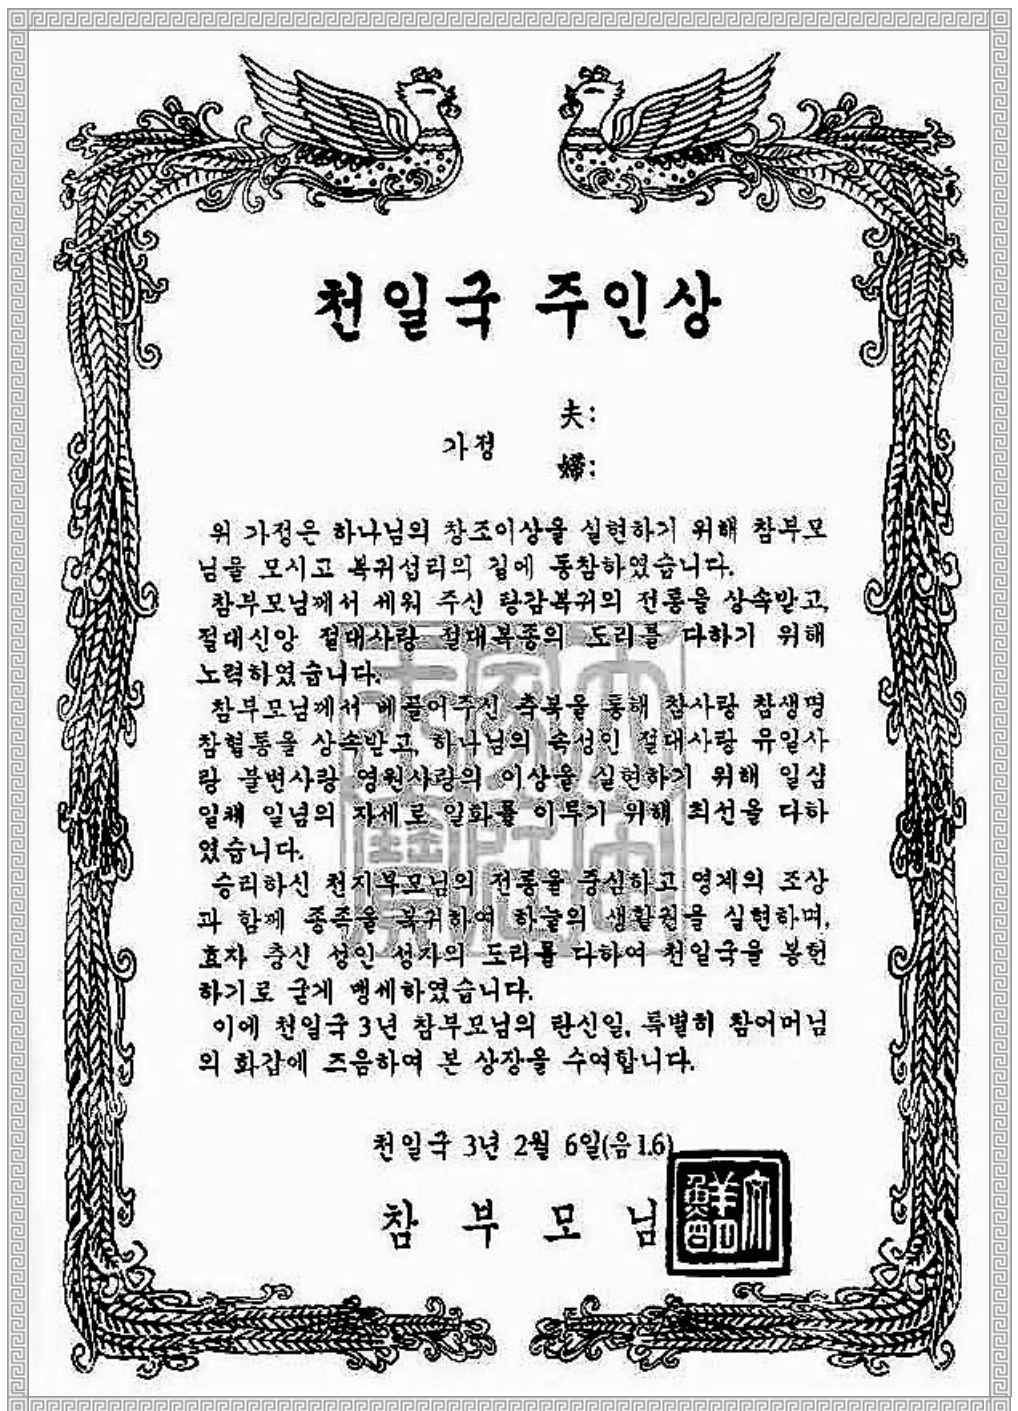 천일국 주인상
가정
夫:
婦:
위 가정은 하나님의 창조이상을 실현하기 위해 참부모
님을 모시고 복귀섭리의 길에 동참하였습니다.
참부모님께서 세워 주신 탕감복귀의 전통을 상속받고,
절대신앙 절대사랑 절대복종의 도리를 다하기 위해
노력하였습니다.
참부모님께서 베풀어주신 축복을 통해 참사랑 참생명
참혈통을 상속받고, 하나님의 속성인 절대사랑 유일사
랑 불변사랑 영원사랑의 이상을 실현하기 위해 일심
일체 일념의 자세로 일화를 이루기 위해 최선을 다하
였습니다.
승리하신 천지부모님의 전통을 중심하고 영계의 조상
과 함께 종족을 복귀하여 하늘의 생활권을 실현하며,
효자 충신 성인 성자의 도리를 다하여 천일국을 봉헌
하기로 굳게 맹세하였습니다.
이에 천일국 3년 참부모님의 탄신일, 특별히 참어머님
의 화갑에 즈음하여 본 상장을 수여합니다.
천일국 3년 2월 6일(음1.6)
참 부 모 님